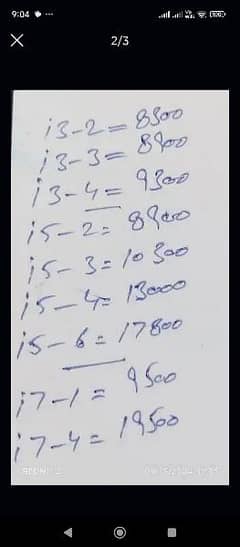 9:04
2/3
i3-2= 8300
i3-3= 8900
i3-4= 9300
i5-2= 8900
i5-3= 10300
i5-4= 13000
i5-6= 17800
i7-1= 9500
i7-4= 19500